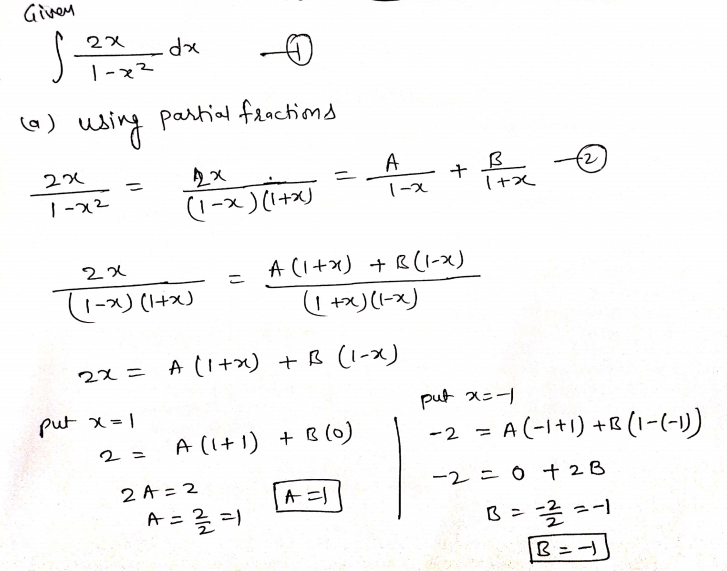 Given
∫ 2x/(1-x²) dx —①
(a) using partial fractions
2x/(1-x²) = 2x/((1-x)(1+x)) = A/(1-x) + B/(1+x) —②
2x/((1-x)(1+x)) = (A(1+x) + B(1-x))/((1+x)(1-x))
2x = A(1+x) + B(1-x)
put x=1
2 = A(1+1) + B(0)
2A = 2
A = 2/2 = 1
A=1
put x=-1
-2 = A(-1+1) + B(1-(-1))
-2 = 0 + 2B
B = -2/2 = -1
B=-1